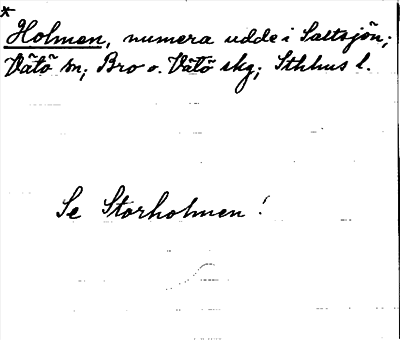 *
Holmen, numera udde i Saltsjön;
Vätö sn; Bro o. Vätö skg; Sthlms l.
Se Storholmen!